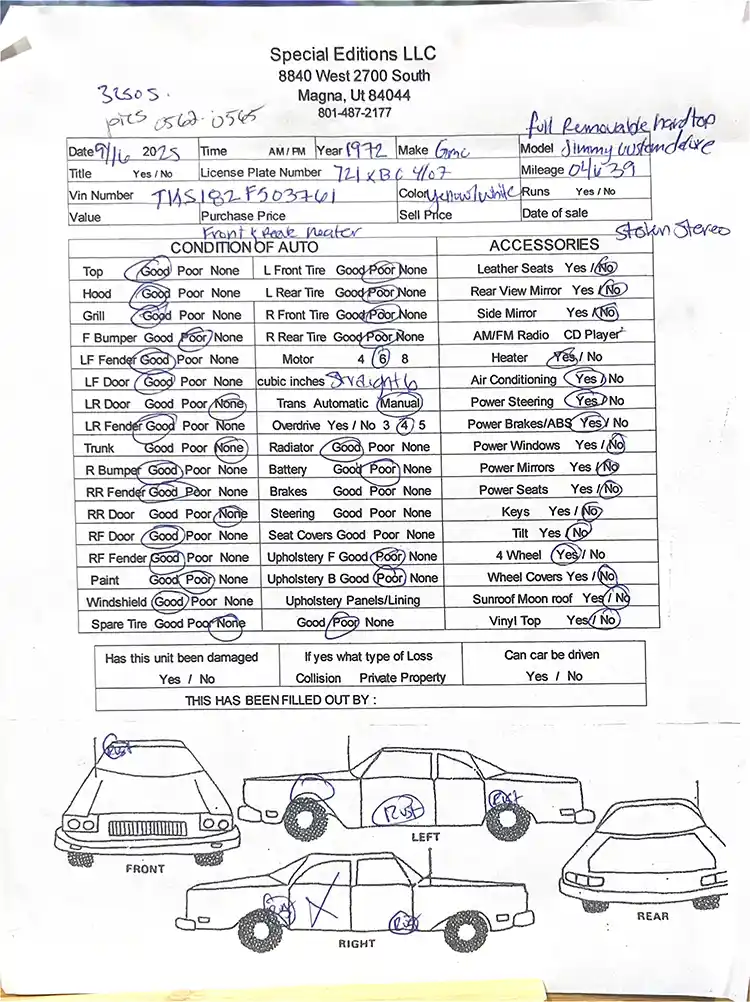 Special Editions LLC
8840 West 2700 South
Magna, Ut 84044
801-487-2177
32505.
pics 0562-0565
full Removable hardtop
Date 9/16 2025 Time AM / PM Year 1972 Make Gmc Model Jimmy
Title Yes / No License Plate Number Mileage
Vin Number Color Yellow/White Runs Yes / No
Value Purchase Price Sell Price Date of sale
Front & Rear heater
Stolen Stereo
CONDITION OF AUTO ACCESSORIES
Top Good Poor None L Front Tire Good Poor None Leather Seats Yes / No
Hood Good Poor None L Rear Tire Good Poor None Rear View Mirror Yes / No
Grill Good Poor None R Front Tire Good Poor None Side Mirror Yes / No
F Bumper Good Poor None R Rear Tire Good Poor None AM/FM Radio CD Player
LF Fender Good Poor None Motor 4 6 8 Heater Yes / No
LF Door Good Poor None cubic inches Straight 6 Air Conditioning Yes / No
LR Door Good Poor None Trans Automatic Manual Power Steering Yes / No
LR Fender Good Poor None Overdrive Yes / No 3 4 5 Power Brakes/ABS Yes / No
Trunk Good Poor None Radiator Good Poor None Power Windows Yes / No
R Bumper Good Poor None Battery Good Poor None Power Mirrors Yes / No
RR Fender Good Poor None Brakes Good Poor None Power Seats Yes / No
RR Door Good Poor None Steering Good Poor None Keys Yes / No
RF Door Good Poor None Seat Covers Good Poor None Tilt Yes / No
RF Fender Good Poor None Upholstery F Good Poor None 4 Wheel Yes / No
Paint Good Poor None Upholstery B Good Poor None Wheel Covers Yes / No
Windshield Good Poor None Upholstery Panels/Lining Sunroof Moon roof Yes / No
Spare Tire Good Poor None Good Poor None Vinyl Top Yes / No
Has this unit been damaged If yes what type of Loss Can car be driven
Yes / No Collision Private Property Yes / No
THIS HAS BEEN FILLED OUT BY :
Rust
Rust
Rust
LEFT
FRONT
Rust
Rust
RIGHT
REAR